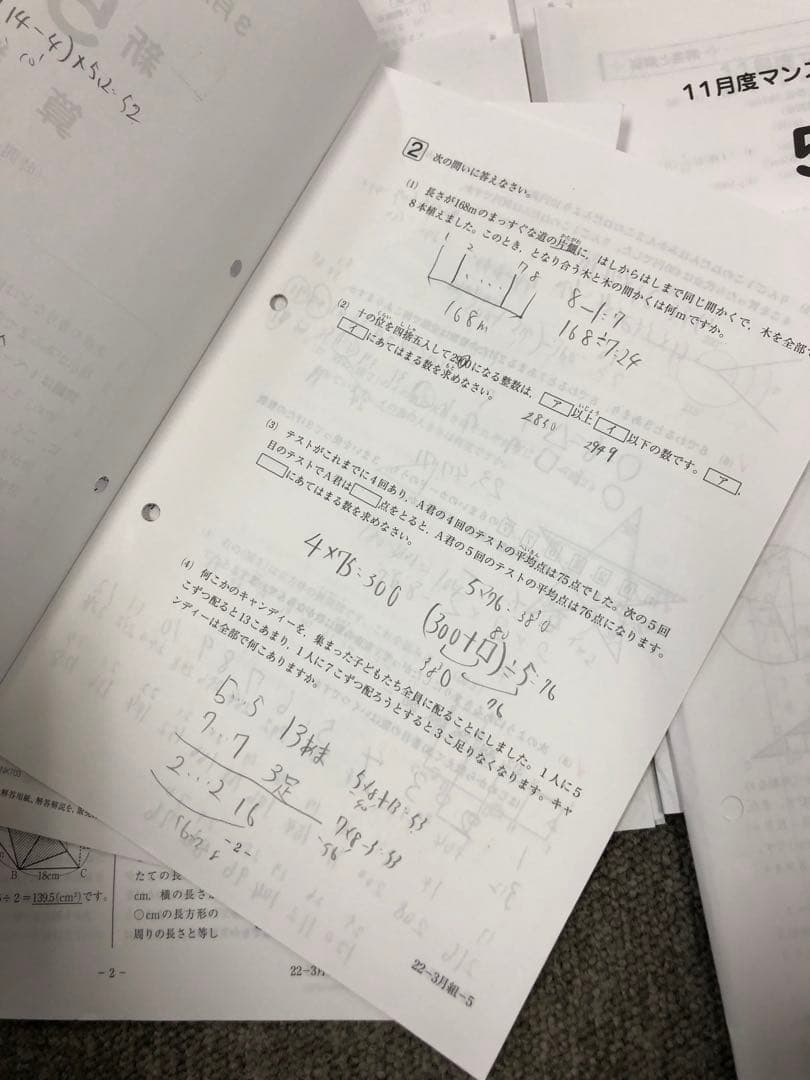 (14-4)×5.2=52
3月
新
算
11月度マンス
5
2 次の問いに答えなさい。
(1) 長さが168mのまっすぐな道の片側に、はしからはしまで同じ間かくで、木を全部で
8本植えました。このとき、となり合う木と木の間かくは何mですか。
1 2 7 8
168m
8-1=7
168÷7=24
(2) 十の位を四捨五入して2900になる整数は、ア以上イ以下の数です。ア、
イにあてはまる数を求めなさい。
2850
2949
(3) テストがこれまでに4回あり、A君の4回のテストの平均点は75点でした。次の5回
目のテストでA君は□点をとると、A君の5回のテストの平均点は76点になります。
□にあてはまる数を求めなさい。
4×75=300
5×76=380
80
(300+□)÷5=76
380
76
(4) 何こかのキャンディーを、集まった子どもたち全員に配ることにしました。1人に5
こずつ配ると13こあまり、1人に7こずつ配ろうとすると3こ足りなくなります。キャ
ンディーは全部で何こありますか。
5…5 13あま
7…7 3足
2…2 16
5×8+13=53
40
7×8-3=53
56
16÷2=8
-2-
22-3月組-5
B 18cm C
÷2=139.5(cm²)です。
たての長
cm、横の長さ
○cmの長方形の
周りの長さと等し
-2-
22-3月